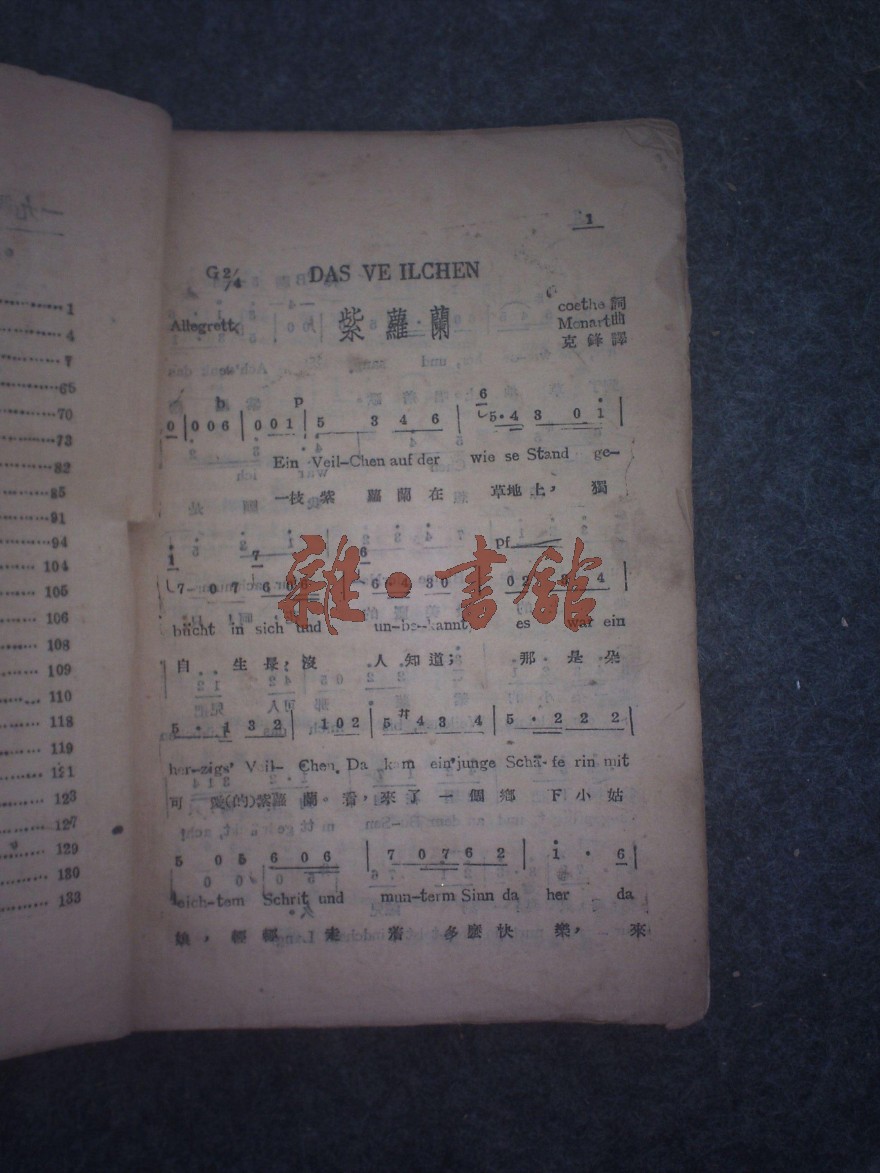 1
4
7
65
70
73
82
85
91
94
104
105
106
108
109
110
118
119
121
123
127
129
130
133
1
G 2/4 DAS VE ILCHEN
Allegrett 紫蘿蘭 coethe 詞
Monart 曲
克鋒譯
b p
0 0 0 6 | 0 0 1 | 5 3 4 6 | 6 5·4 3 0 i |
Ein Veil-Chen auf der wie se Stand ge-
一枝紫蘿蘭在 草地上，獨
pf
i 7 6
7-0 7 6 6 6 | 6 4 3 0 | 0 2 3 4 |
bücht in sich und un-be-kannt, es war ein
自生長，沒人知道；那是朵
5 · 1 3 2 | 1 0 2 | 5 #4 3 4 | 5 · 2 2 2 |
her-zigs' Veil- Chen. Da kam ein'junge Schä-fe rin mit
可愛(的)紫蘿蘭。看，來了一個鄉下小姑
5 0 5 6 0 6 | 7 0 7 6 2 | i · 6 |
leich-tem Schrit und mun-term Sinn da her da
娘，輕輕走着多麽快樂，來
雜·書館